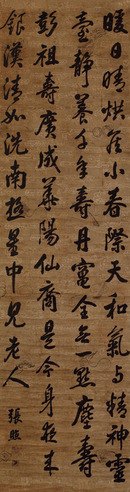 暖日晴烘候小春際天和氣與精神靈
臺靜養千年壽丹竈全無一點塵壽
彭祖壽廣成華陽仙裔是今身夜來
銀漢清如洗南極星中見老人
張照